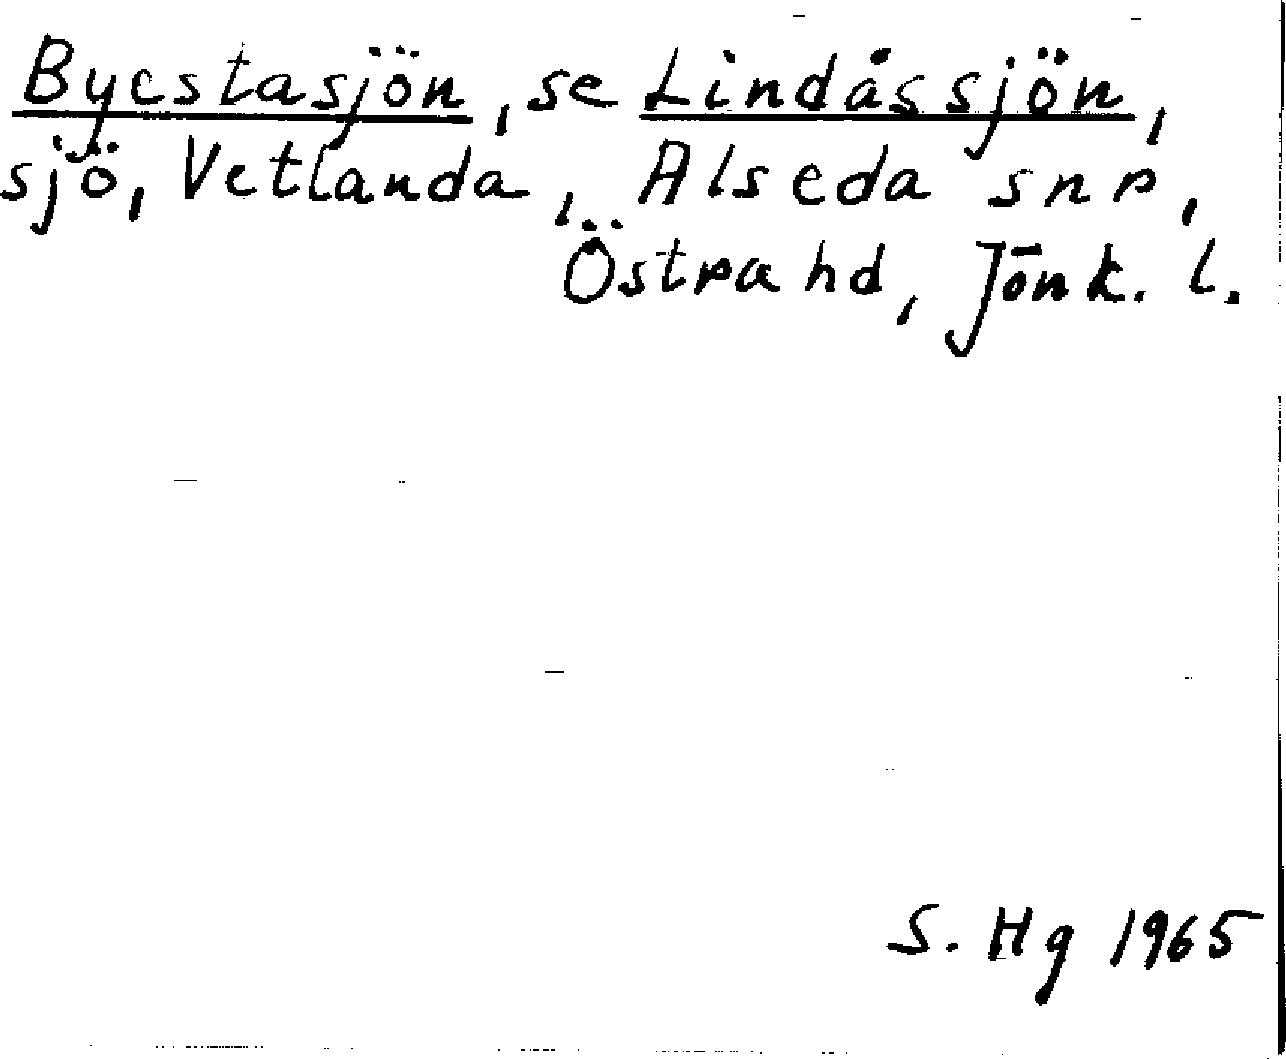 Byestasjön, se Lindåssjön,
sjö, Vetlanda, Alseda snr,
Östra hd, Jönk. l.
S. Hg 1965